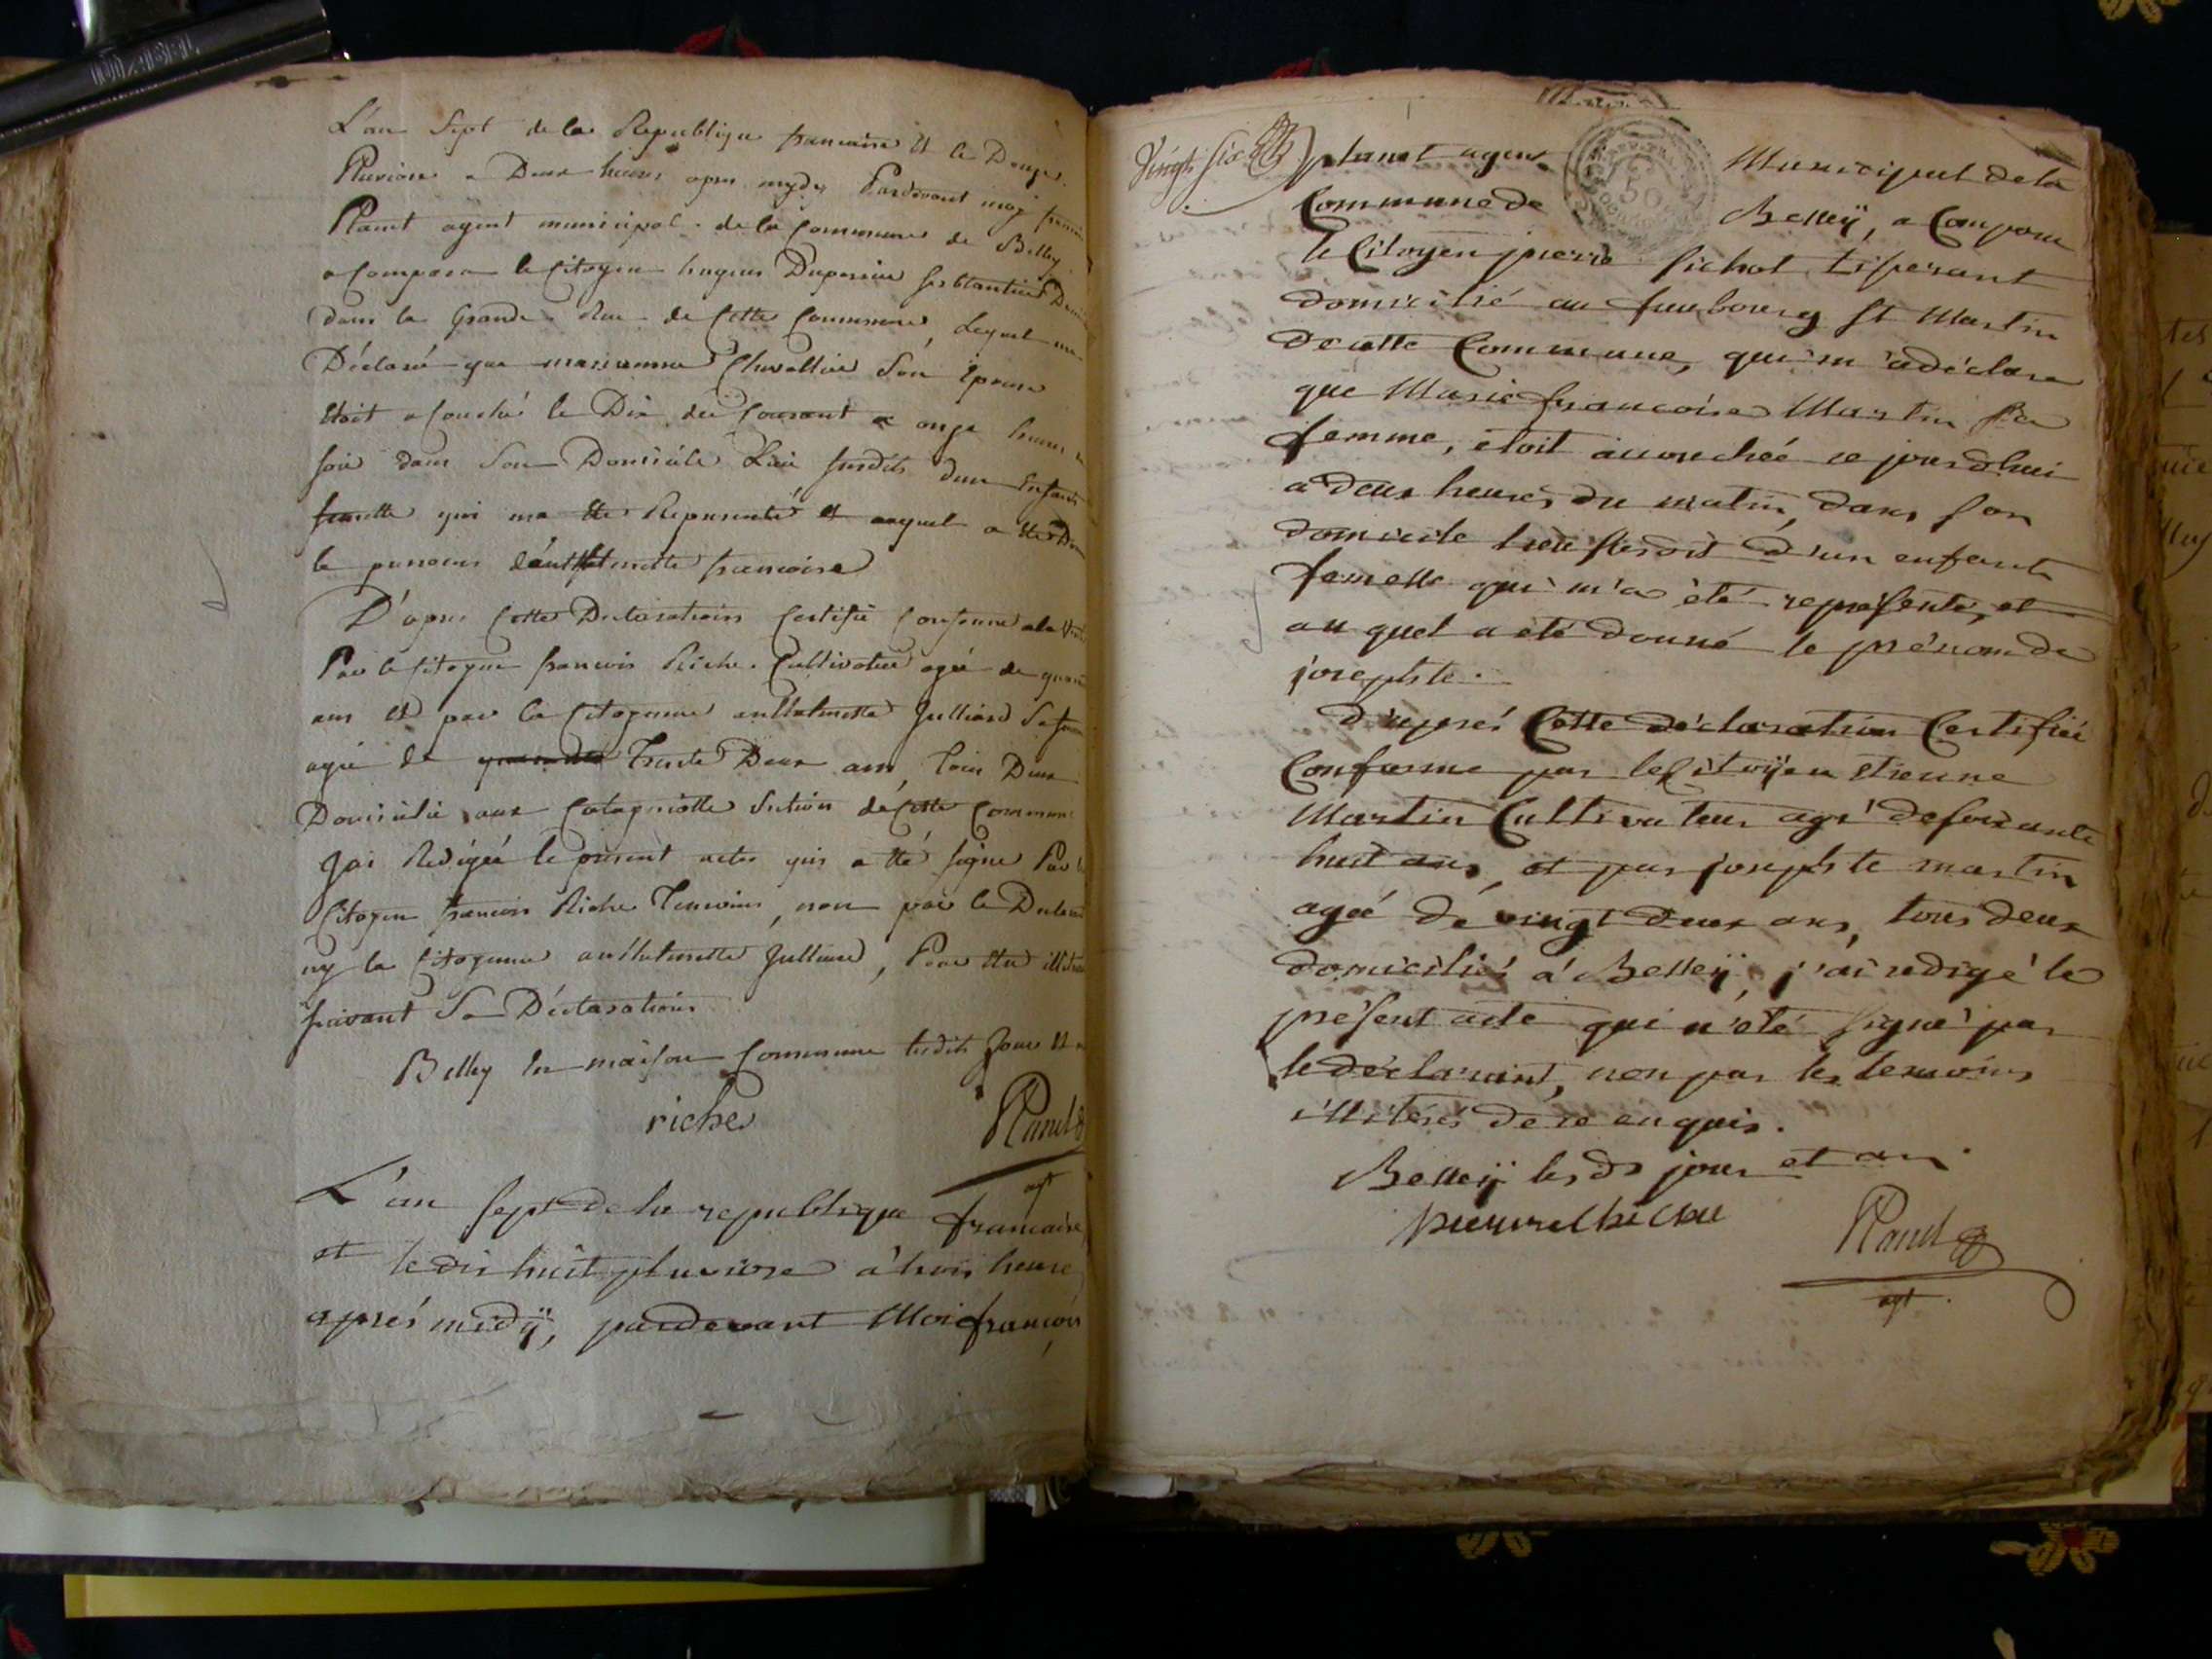 L'an sept de la Republique francaise et le Douze
Pluviose a Deux heures apres mydy Pardevant moy
Planet agent municipal de la Commune de Belley
a Comparu le Citoyen hugues Duperrier ferblantier
dans la Grande Rue de Cette Commune, Lequel
Déclaré que marianne Chevallier Son Epouse
Etoit acouché le Dix du Courant a onze heures
soir dans Son Domicile Lieu susdits dun Enfant
femelle qui ma Eté Représenté et auquel a Eté
le prenom d'anthelmette francoise
D'apres Cette Declaration Certifié Conforme ala
Par le Citoyen francois Riche Cultivateur agé de
ans et par la Citoyenne anthelmette Julliard Sa
agée de Trente Deux ans, tous Deux
Domicilié aux Section de Cette Commune
Jai Redigée le present acte qui a été signé Par
Citoyen francois Riche Temoins, non par le
ny la Citoyenne anthelmette Julliard, Pour Etre
suivant Sa Déclaration
Belley En maison Commune lesdits Jour et
riche
Planet
agt
L'an sept de la republique francaise
et le dix huit pluviose à trois heure
aprés midÿ, pardevant Moi francois
Vingt six
planet agent Municipal de la
50
Commune de Belleÿ, a Comparu
le Citoyen pierre sichot tisserant
domicilié au faubourg St Martin
de cette Commune, qui m'a déclaré
que Marie francoise Martin sa
femme, étoit accouchée ce jourdhui
a deux heures du matin, dans son
domicile lieu susdit d'un enfant
femelle qui m'a été représenté, et
au quel a été donné le prénom de
josephte.
d'aprés Cette déclaration Certifiée
Conforme par le Citoÿen etienne
Martin Cultivateur agé de soixante
huit ans, et par josephte martin
agée de vingt deux ans, tous deux
domiciliés á Belleÿ, j'ai redigé le
présent acte qui a été signé par
le déclarant, non par les temoins
illitérés de ce enquis.
Belleÿ les ds jour et an.
Planet
agt